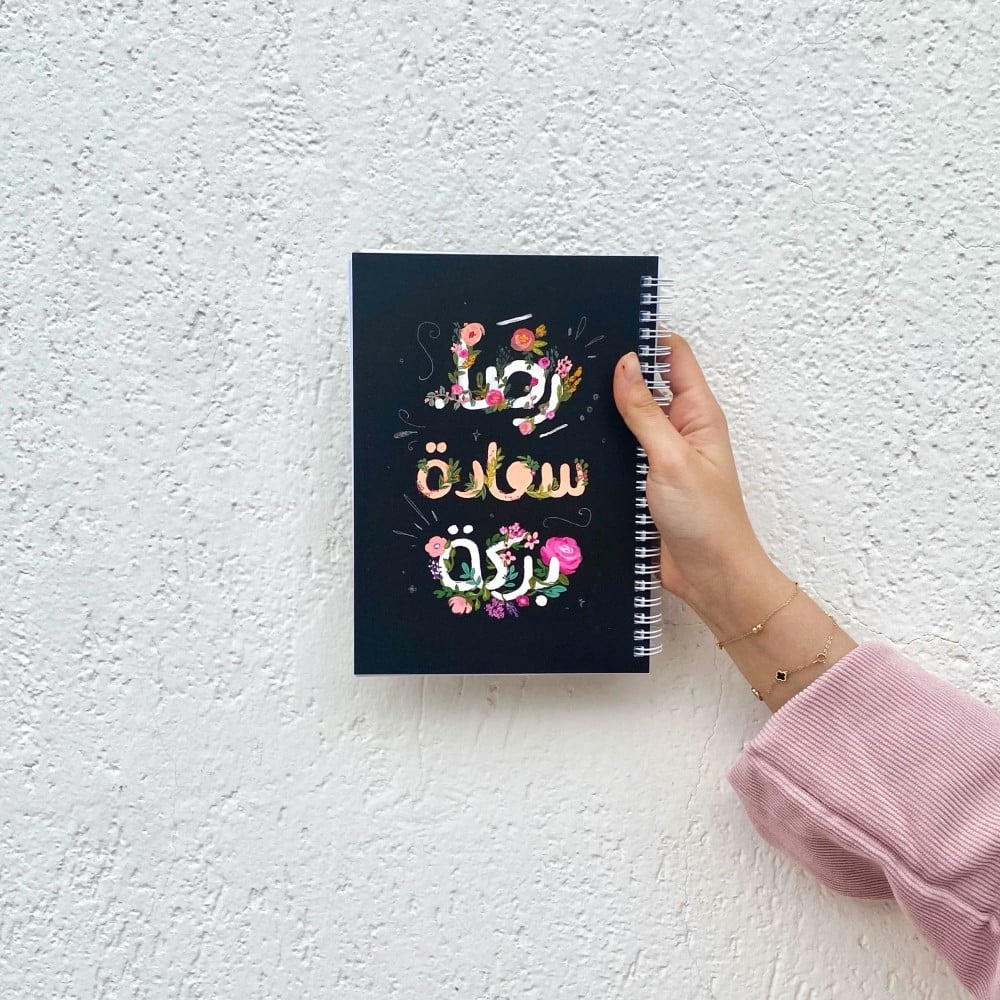 رضا
سعادة
بركة